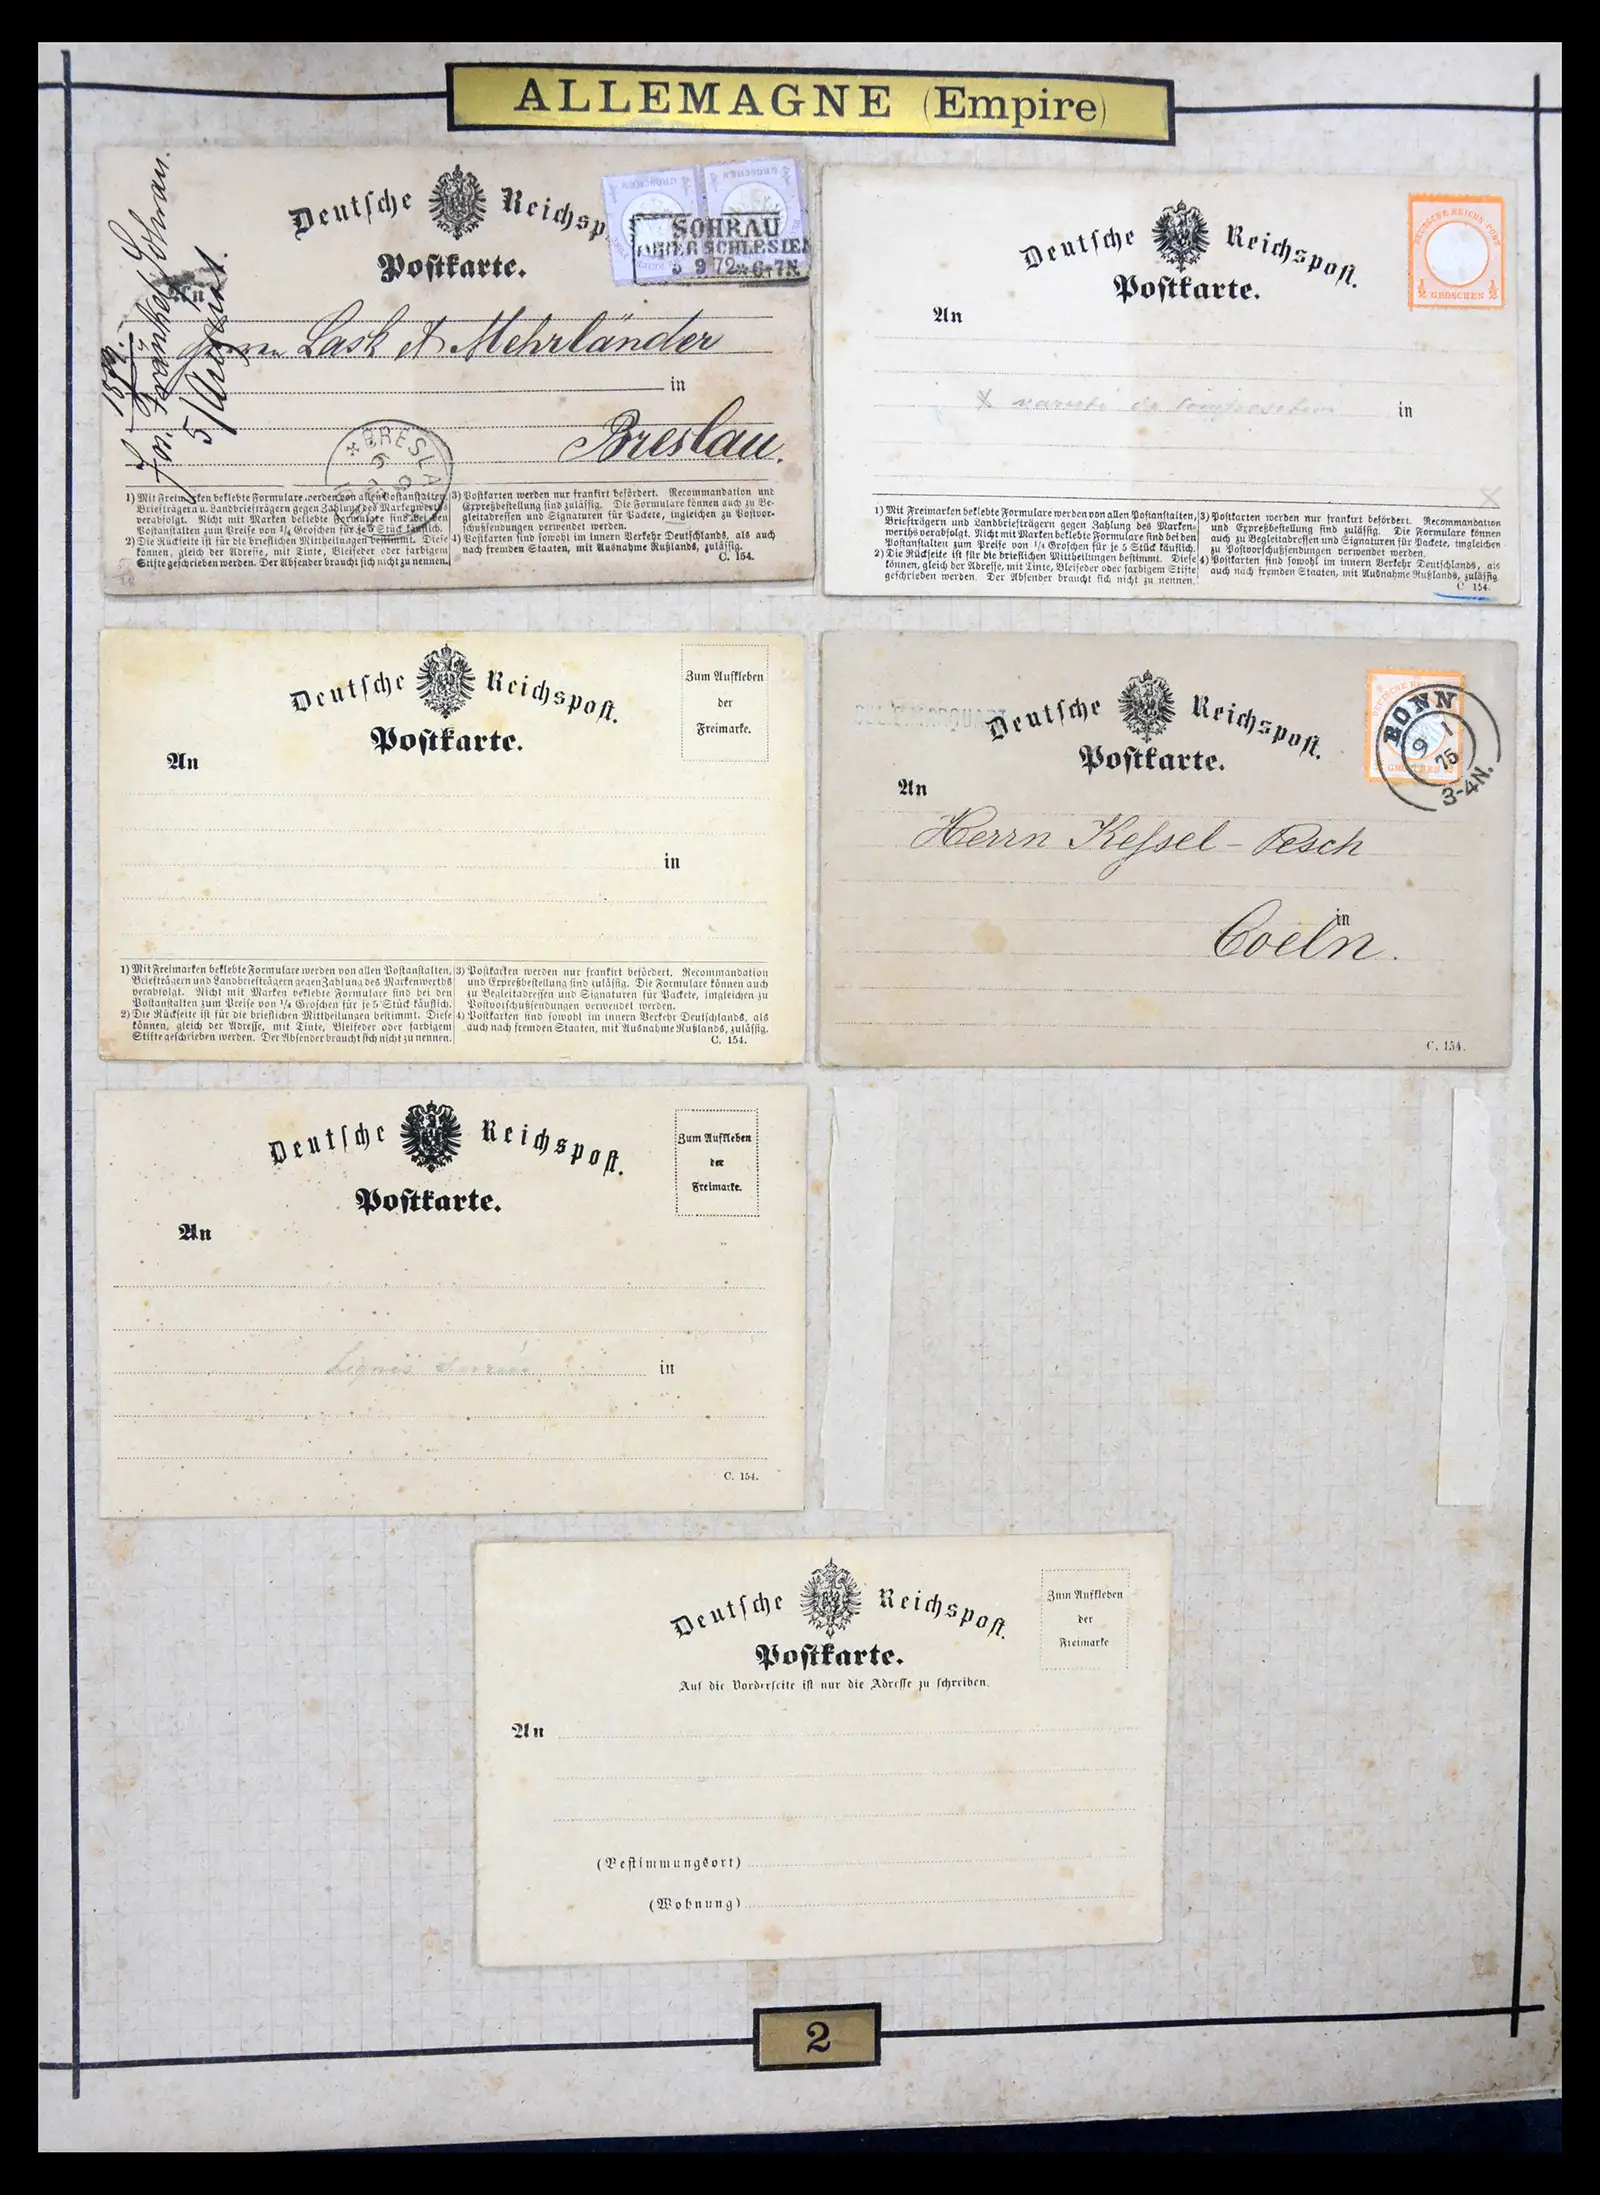 ALLEMAGNE (Empire)
Deutsche Reichsp
Postkarte.
GROSCHEN
GROSCHEN
SOHRAU
OBER SCHLESIEN
5 9 72 6-7N.
An
Jos. Fränkel, Sohrau.
5/August.
Herren Lask & Mehrländer
in
Breslau.
BRESLA
1) Mit Freimarken beklebte Formulare werden von allen Postanstalten,
Briefträgern u. Landbriefträgern gegen Zahlung des Markenwerths
verabfolgt. Nicht mit Marken beklebte Formulare sind bei den
Postanstalten zum Preise von ¼ Groschen für je 5 Stück käuflich.
2) Die Rückseite ist für die brieflichen Mittheilungen bestimmt. Diese
können, gleich der Adresse, mit Tinte, Bleifeder oder farbigem
Stifte geschrieben werden. Der Absender braucht sich nicht zu nennen.
3) Postkarten werden nur frankirt befördert. Recommandation und
Expreßbestellung sind zulässig. Die Formulare können auch zu Be-
gleitadressen und Signaturen für Packete, ingleichen zu Postvor-
schußsendungen verwendet werden.
4) Postkarten sind sowohl im innern Verkehr Deutschlands, als auch
nach fremden Staaten, mit Ausnahme Rußlands, zulässig.
C. 154.
Deutsche Reichspost.
Postkarte.
DEUTSCHE REICHS-POST
½ GROSCHEN ½
An
X varieté de composition
in
1) Mit Freimarken beklebte Formulare werden von allen Postanstalten,
Briefträgern und Landbriefträgern gegen Zahlung des Marken-
werths verabfolgt. Nicht mit Marken beklebte Formulare sind bei den
Postanstalten zum Preise von ¼ Groschen für je 5 Stück käuflich.
2) Die Rückseite ist für die brieflichen Mittheilungen bestimmt. Diese
können, gleich der Adresse, mit Tinte, Bleifeder oder farbigem Stifte
geschrieben werden. Der Absender braucht sich nicht zu nennen.
3) Postkarten werden nur frankirt befördert. Recommandation
und Expreßbestellung sind zulässig. Die Formulare können
auch zu Begleitadressen und Signaturen für Packete, imgleichen
zu Postvorschußsendungen verwendet werden.
4) Postkarten sind sowohl im innern Verkehr Deutschlands, als
auch nach fremden Staaten, mit Ausnahme Rußlands, zulässig
C 154.
Deutsche Reichspost.
Postkarte.
Zum Aufkleben
der
Freimarke.
An
in
1) Mit Freimarken beklebte Formulare werden von allen Postanstalten,
Briefträgern und Landbriefträgern gegen Zahlung des Markenwerths
verabfolgt. Nicht mit Marken beklebte Formulare sind bei den
Postanstalten zum Preise von ¼ Groschen für je 5 Stück käuflich.
2) Die Rückseite ist für die brieflichen Mittheilungen bestimmt. Diese
können, gleich der Adresse, mit Tinte, Bleifeder oder farbigem
Stifte geschrieben werden. Der Absender braucht sich nicht zu nennen.
3) Postkarten werden nur frankirt befördert. Recommandation
und Expreßbestellung sind zulässig. Die Formulare können auch
zu Begleitadressen und Signaturen für Packete, imgleichen zu
Postvorschußsendungen verwendet werden.
4) Postkarten sind sowohl im innern Verkehr Deutschlands, als
auch nach fremden Staaten, mit Ausnahme Rußlands, zulässig.
C. 154.
Deutsche Reichspost.
Postkarte.
BONN
9 1
75
3-4N.
An
Herrn Kessel-Pesch
in
Coeln.
C. 154.
Deutsche Reichspost.
Postkarte.
Zum Aufkleben
der
Freimarke.
An
in
C. 154.
Deutsche Reichspost.
Postkarte.
Auf die Vorderseite ist nur die Adresse zu schreiben.
Zum Aufkleben
der
Freimarke
An
(Bestimmungsort)
(Wohnung)
2